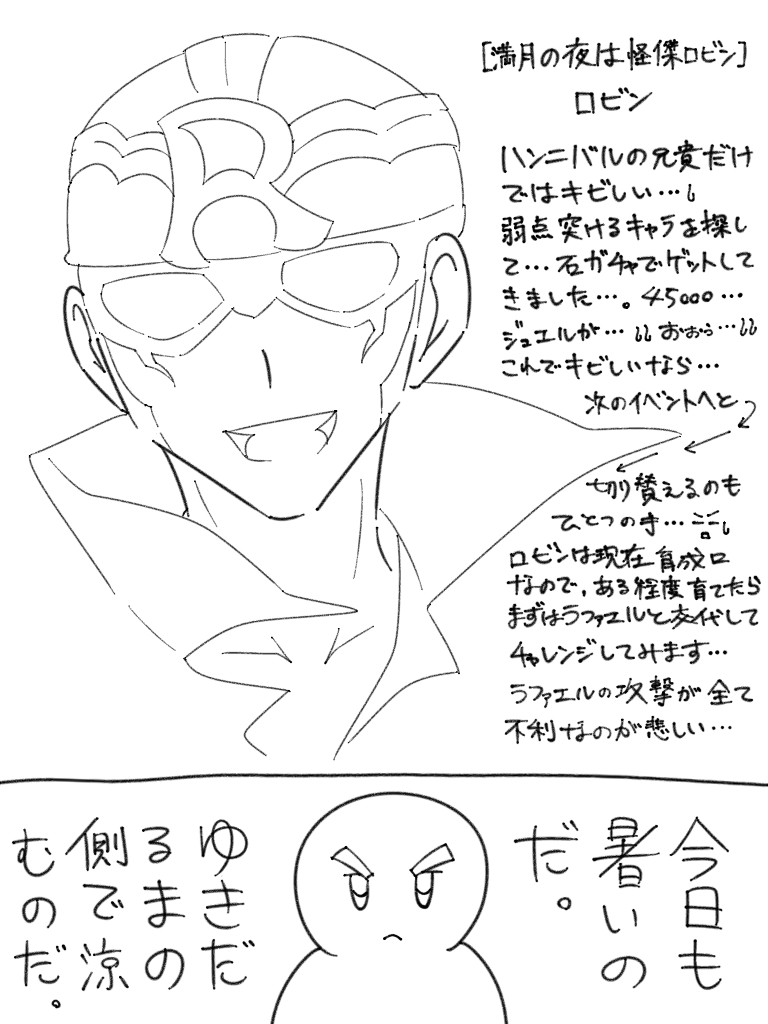 [満月の夜は怪傑ロビン]
ロビン
ハンニバルの兄貴だけ
ではキビしい…
弱点突けるキャラを探し
て…石ガチャでゲットして
きました…。45000…
ジュエルが…おぉぅ…
これでキビしいなら…
次のイベントへと
切り替えるのも
ひとつの手…
ロビンは現在育成中
なので、ある程度育てたら
まずはラファエルと交代して
チャレンジしてみます…
ラファエルの攻撃が全て
不利なのが悲しい…
R
今日も
暑いの
だ。
ゆきだ
るまの
側で涼
むのだ。